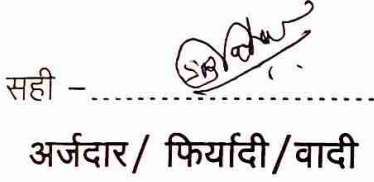 सही -
अर्जदार/ फिर्यादी/वादी